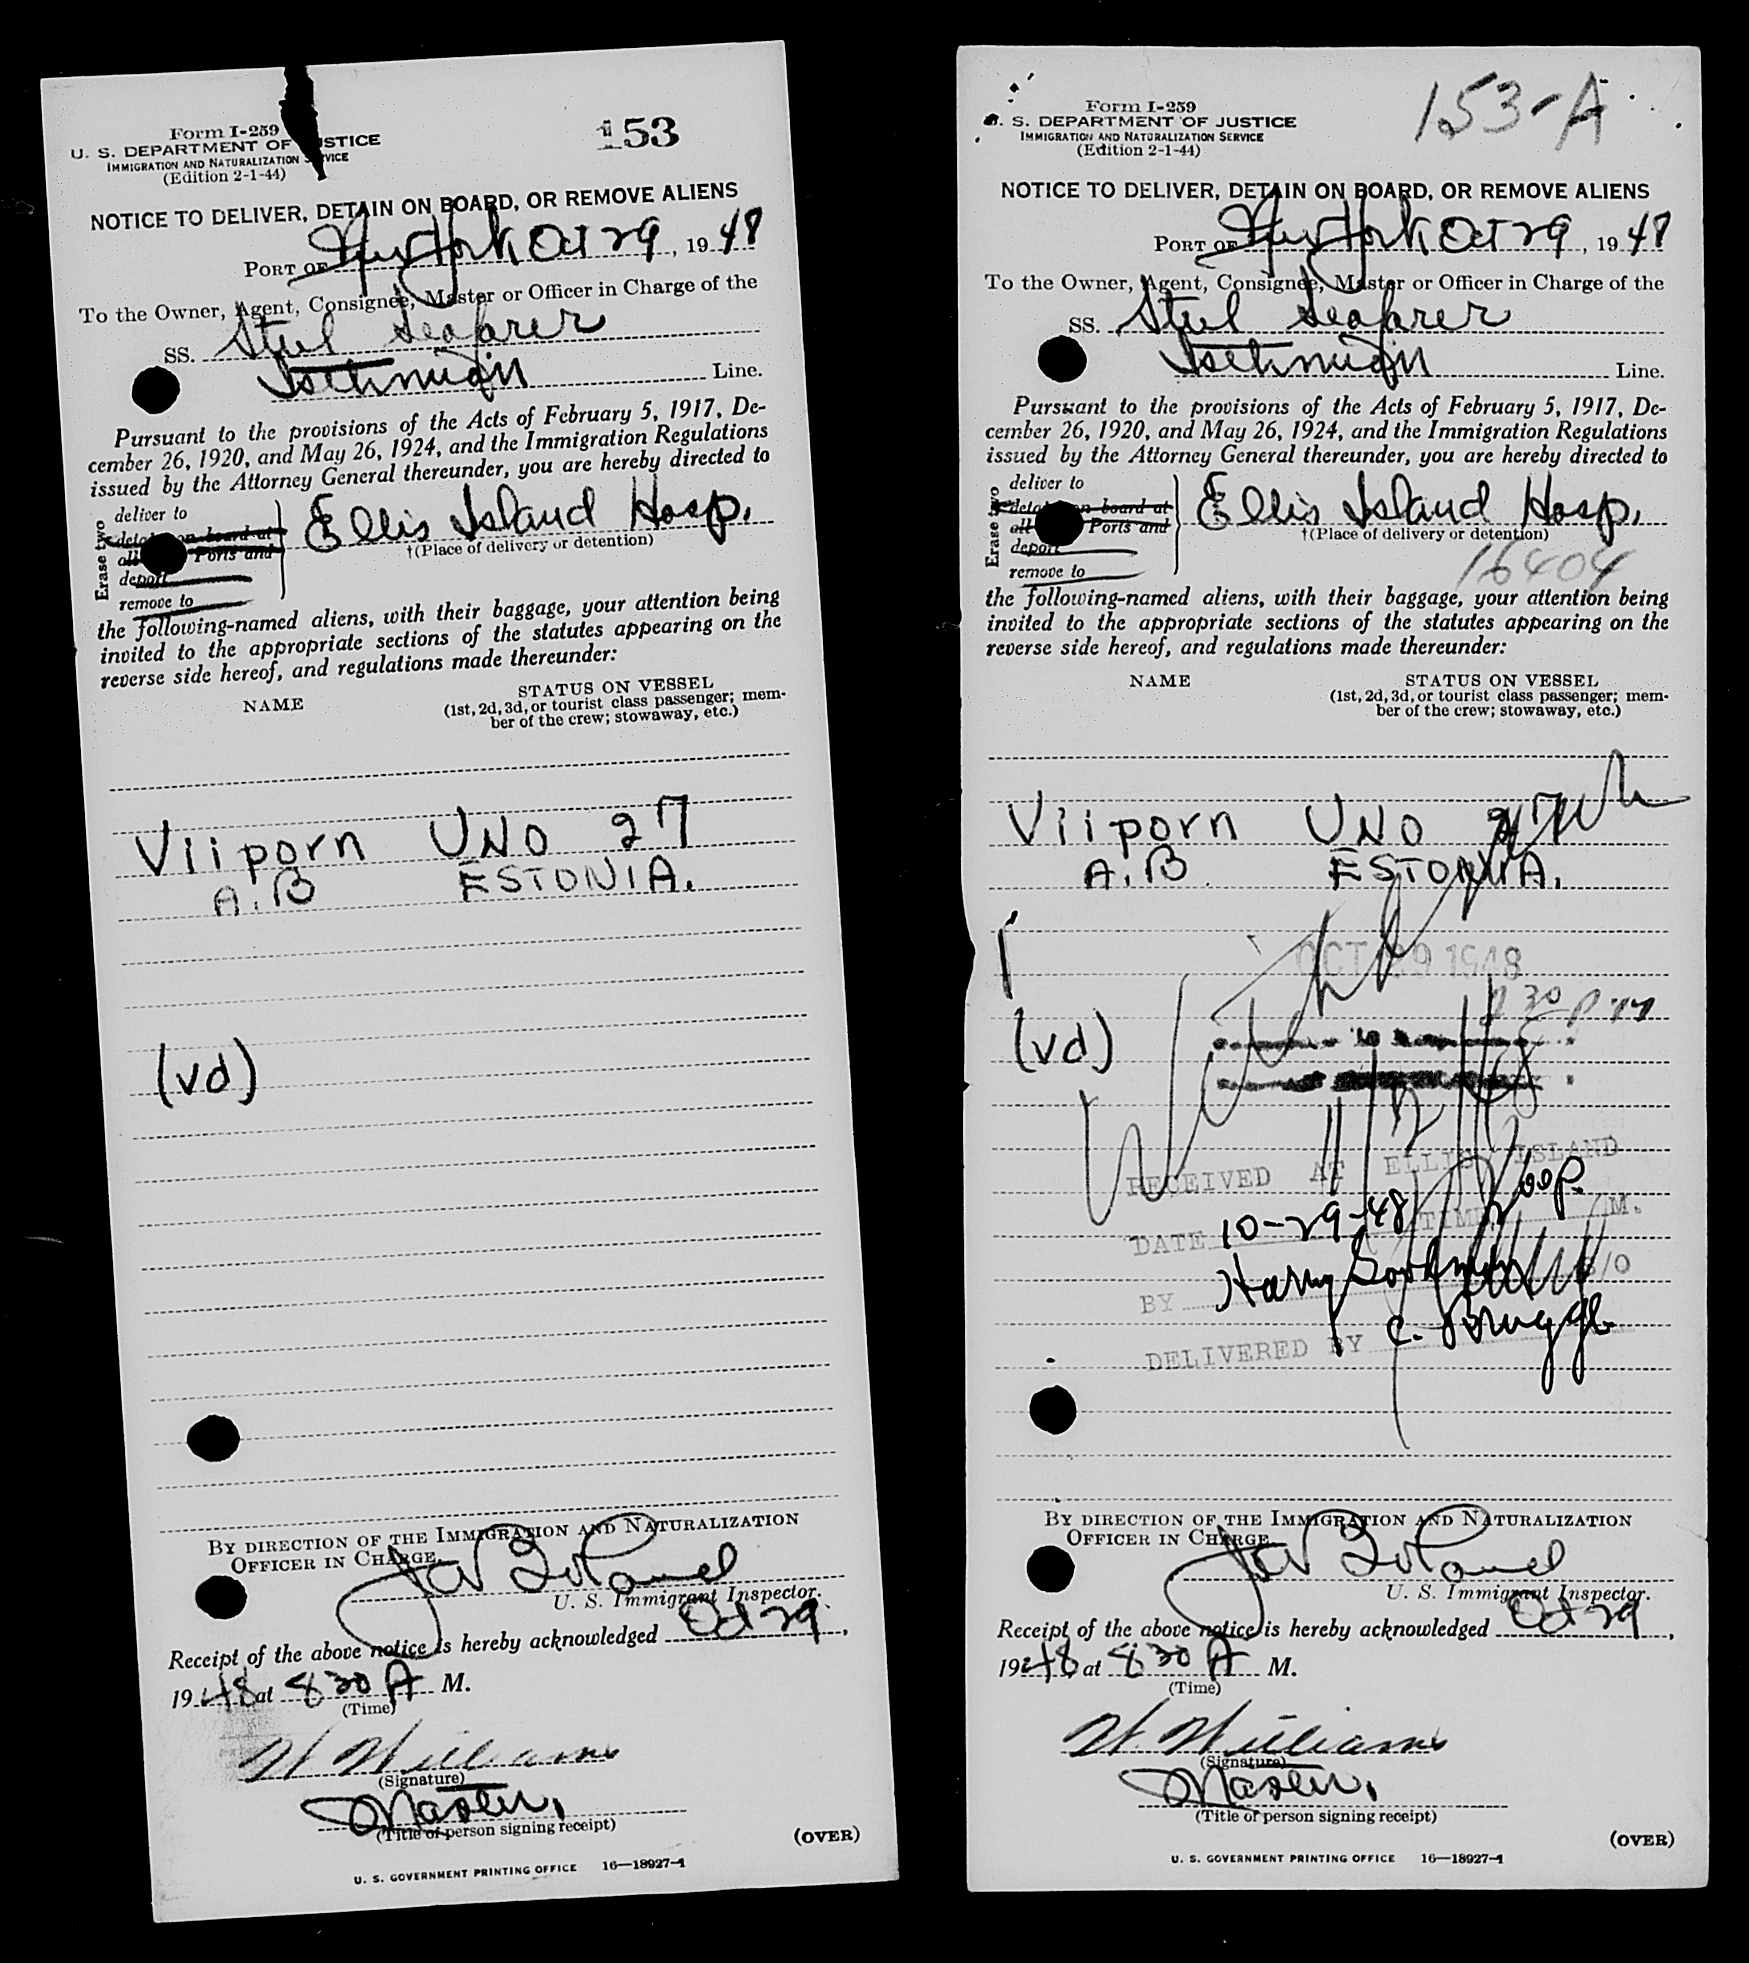 Form I-259
U. S. DEPARTMENT OF JUSTICE
IMMIGRATION AND NATURALIZATION SERVICE
(Edition 2-1-44)
153
NOTICE TO DELIVER, DETAIN ON BOARD, OR REMOVE ALIENS
PORT OF New York Oct 29, 19 48
To the Owner, Agent, Consignee, Master or Officer in Charge of the
SS. Steel Seafarer
Isthmian Line.
Pursuant to the provisions of the Acts of February 5, 1917, De-
cember 26, 1920, and May 26, 1924, and the Immigration Regulations
issued by the Attorney General thereunder, you are hereby directed to
Erase two
deliver to
detain on board at
all Ports and
deport
remove to
Ellis Island Hosp.
†(Place of delivery or detention)
the following-named aliens, with their baggage, your attention being
invited to the appropriate sections of the statutes appearing on the
reverse side hereof, and regulations made thereunder:
NAME
STATUS ON VESSEL
(1st, 2d, 3d, or tourist class passenger; mem-
ber of the crew; stowaway, etc.)
Viiporn UNO 27
A.B ESTONIA.
(vd)
BY DIRECTION OF THE IMMIGRATION AND NATURALIZATION
OFFICER IN CHARGE.
U. S. Immigrant Inspector.
Receipt of the above notice is hereby acknowledged Oct 29,
19 48 at 8 30 A M.
(Time)
W. Williams
(Signature)
Master.
(Title of person signing receipt)
(OVER)
U. S. GOVERNMENT PRINTING OFFICE 16—18927-1
Form I-259
U. S. DEPARTMENT OF JUSTICE
IMMIGRATION AND NATURALIZATION SERVICE
(Edition 2-1-44)
153-A
NOTICE TO DELIVER, DETAIN ON BOARD, OR REMOVE ALIENS
PORT OF New York Oct 29, 19 48
To the Owner, Agent, Consignee, Master or Officer in Charge of the
SS. Steel Seafarer
Isthmian Line.
Pursuant to the provisions of the Acts of February 5, 1917, De-
cember 26, 1920, and May 26, 1924, and the Immigration Regulations
issued by the Attorney General thereunder, you are hereby directed to
Erase two
deliver to
detain on board at
all Ports and
deport
remove to
Ellis Island Hosp.
†(Place of delivery or detention)
16404
the following-named aliens, with their baggage, your attention being
invited to the appropriate sections of the statutes appearing on the
reverse side hereof, and regulations made thereunder:
NAME
STATUS ON VESSEL
(1st, 2d, 3d, or tourist class passenger; mem-
ber of the crew; stowaway, etc.)
Viiporn UNO 27
A.B. ESTONIA.
OCT 29 1948
30 PM
(vd)
RECEIVED AT ELLIS ISLAND
DATE 10-29-48 TIME 00 P. M.
BY Harry
DELIVERED BY
BY DIRECTION OF THE IMMIGRATION AND NATURALIZATION
OFFICER IN CHARGE.
U. S. Immigrant Inspector.
Receipt of the above notice is hereby acknowledged Oct 29,
19 48 at 8 30 A M.
(Time)
W. Williams
(Signature)
Master.
(Title of person signing receipt)
(OVER)
U. S. GOVERNMENT PRINTING OFFICE 16—18927-1